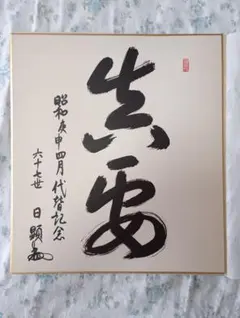 真要
昭和庚申四月代替記念
六十七世 日顕